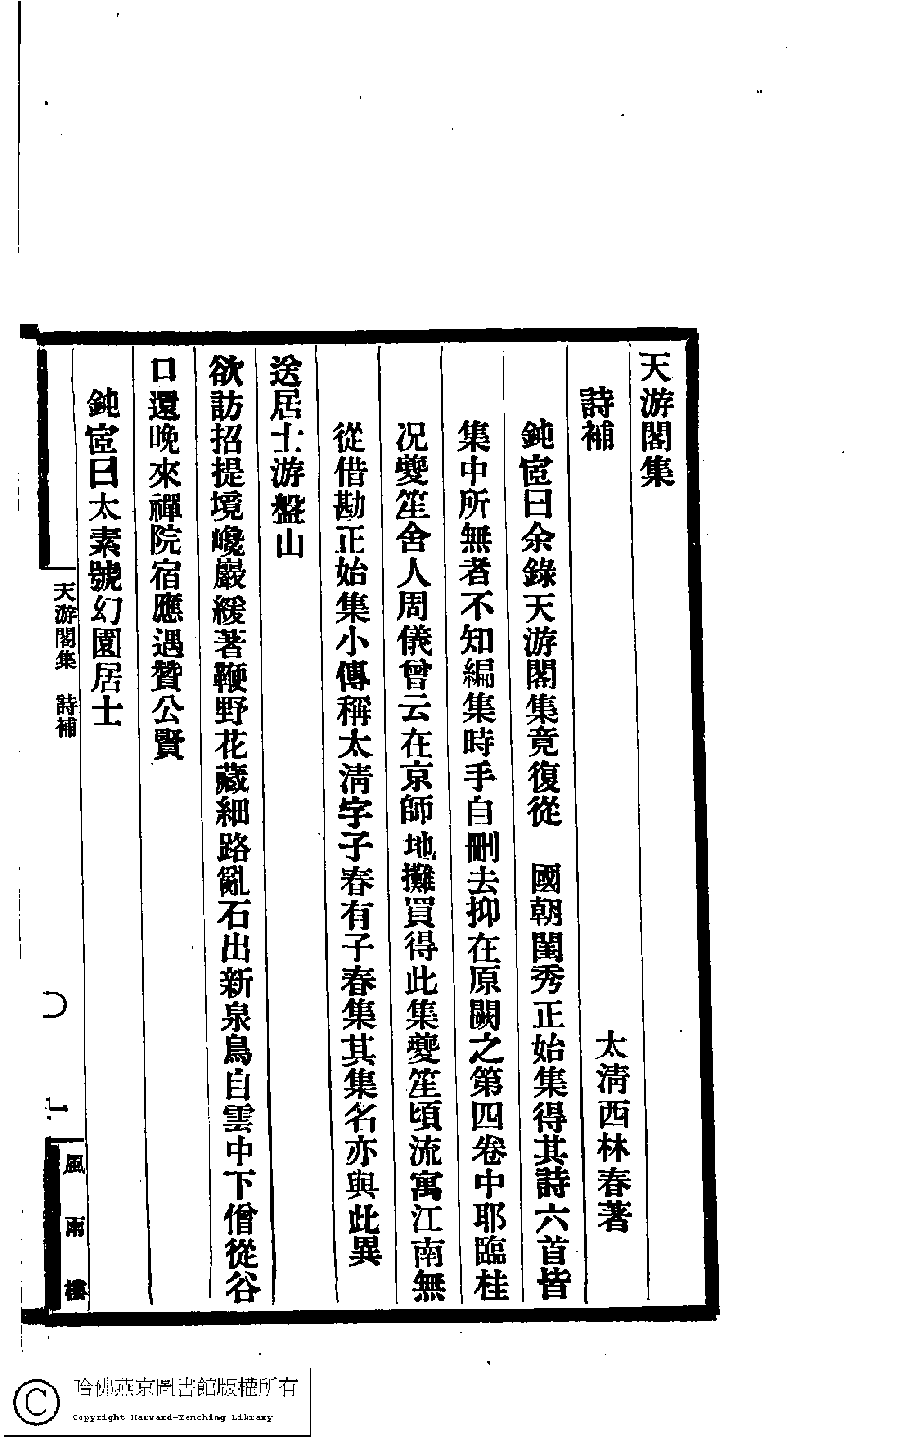 天游閣集
詩補
太清西林春著
鈍宧曰余錄天游閣集竟復從　國朝閨秀正始集得其詩六首皆
集中所無者不知編集時手自刪去抑在原闕之第四卷中耶臨桂
况夔笙舍人周儀曾云在京師地攤買得此集夔笙頃流寓江南無
從借勘正始集小傳稱太清字子春有子春集其集名亦與此異
送居士游盤山
欲訪招提境巉巖緩著鞭野花藏細路亂石出新泉鳥自雲中下僧從谷
口還晚來禪院宿應遇贊公賢
鈍宧曰太素號幻園居士
天游閣集　詩補
一
風雨樓
哈佛燕京圖書館版權所有
Copyright Harvard-Yenching Library